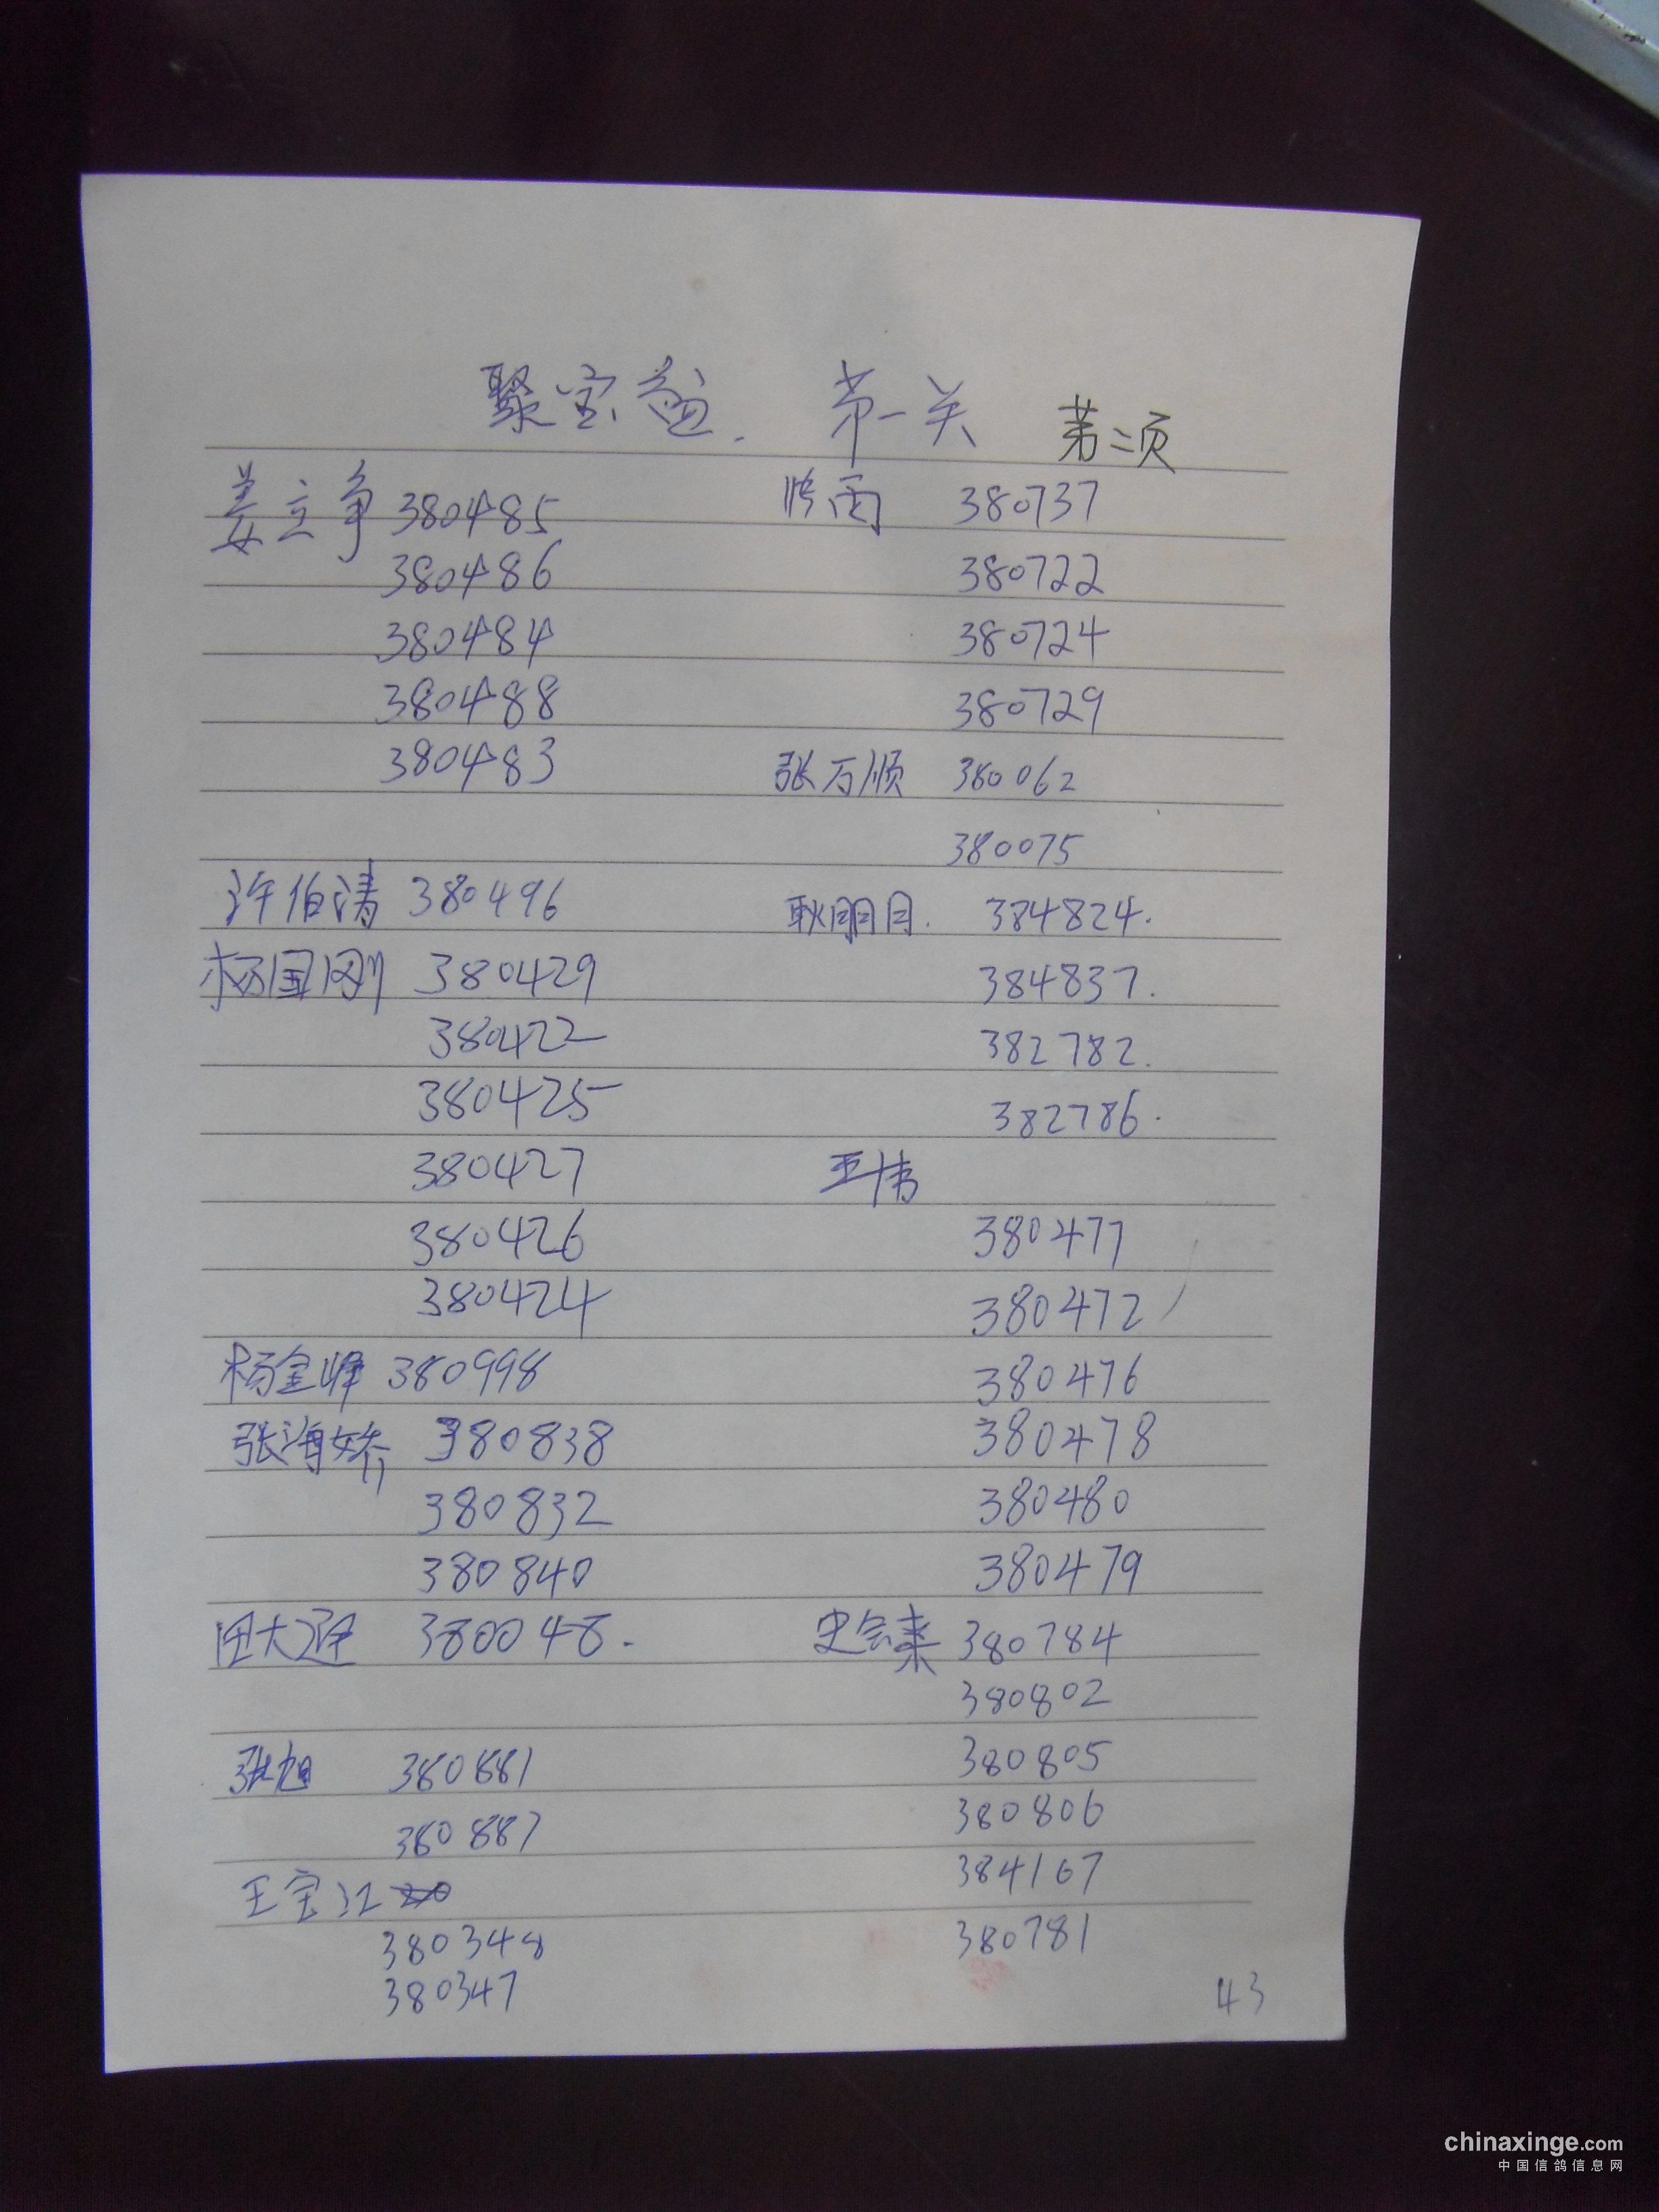 聚宝盆. 第一关 第二页
姜立争 380485
380486
380484
380488
380483
许伯涛 380496
杨国刚 380429
380422
380425
380427
380426
380424
杨金峰 380998
张海娇 380838
380832
380840
田大迎 380048.
张旭 380881
380887
王宝江
380348
380347
雨 380737
380722
380724
380729
张万顺 380062
380075
耿明月. 384824.
384837.
382782.
382786.
王伟
380477
380472
380476
380478
380480
380479
史会来 380784
380802
380805
380806
384167
380781
43
chinaxinge.com
中国信鸽信息网